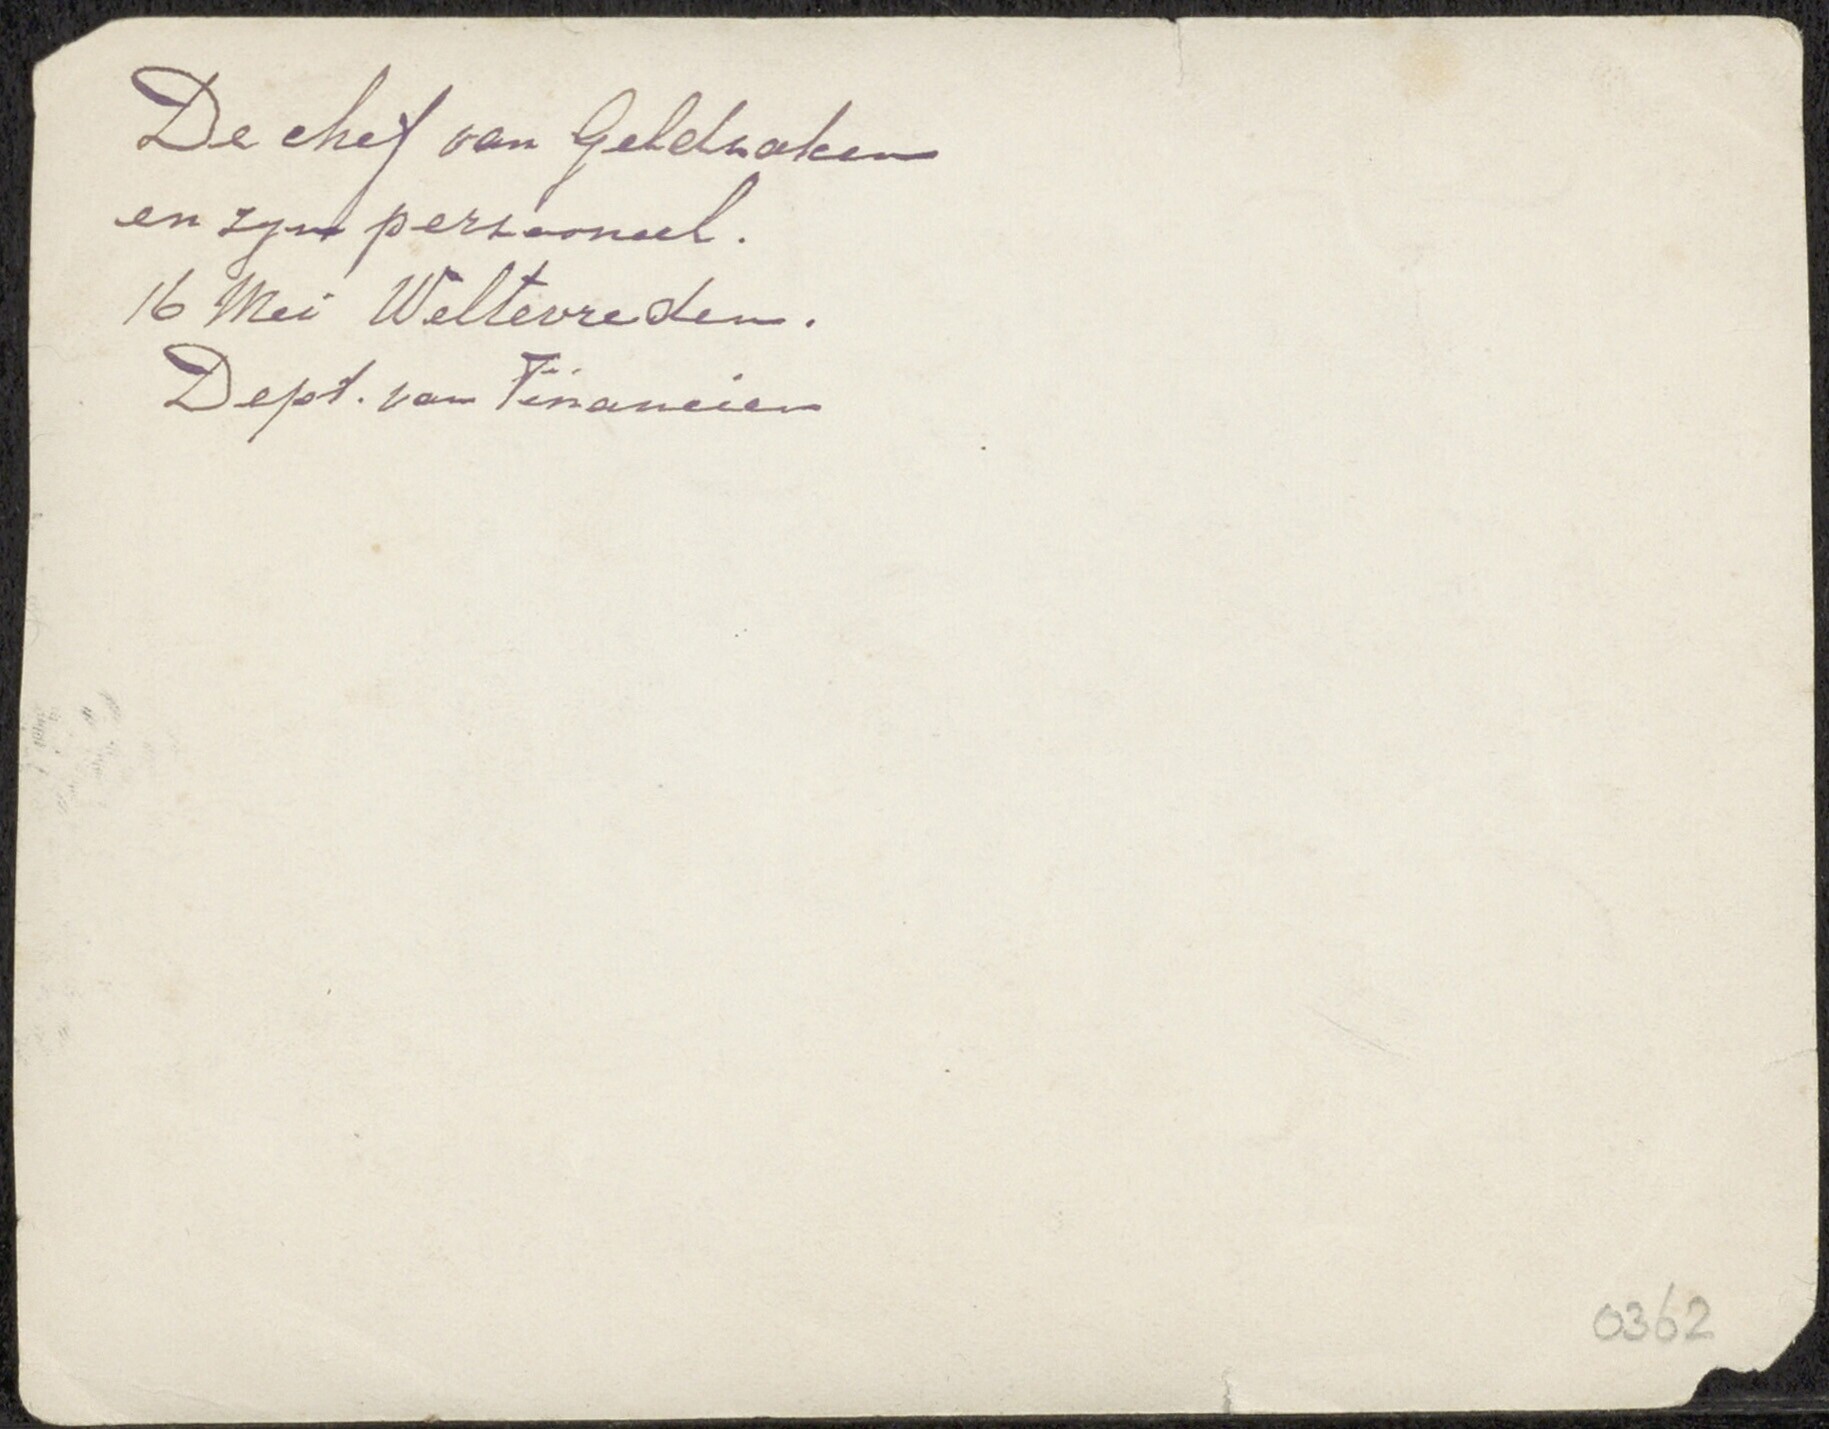 De chef van Geldzaken
en zyn personeel.
16 Mei Weltevreden.
Dept. van Financien
0362